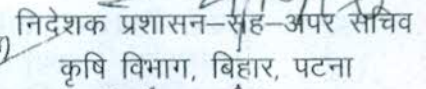 निदेशक प्रशासन–सह–अपर सचिव
कृषि विभाग, बिहार, पटना